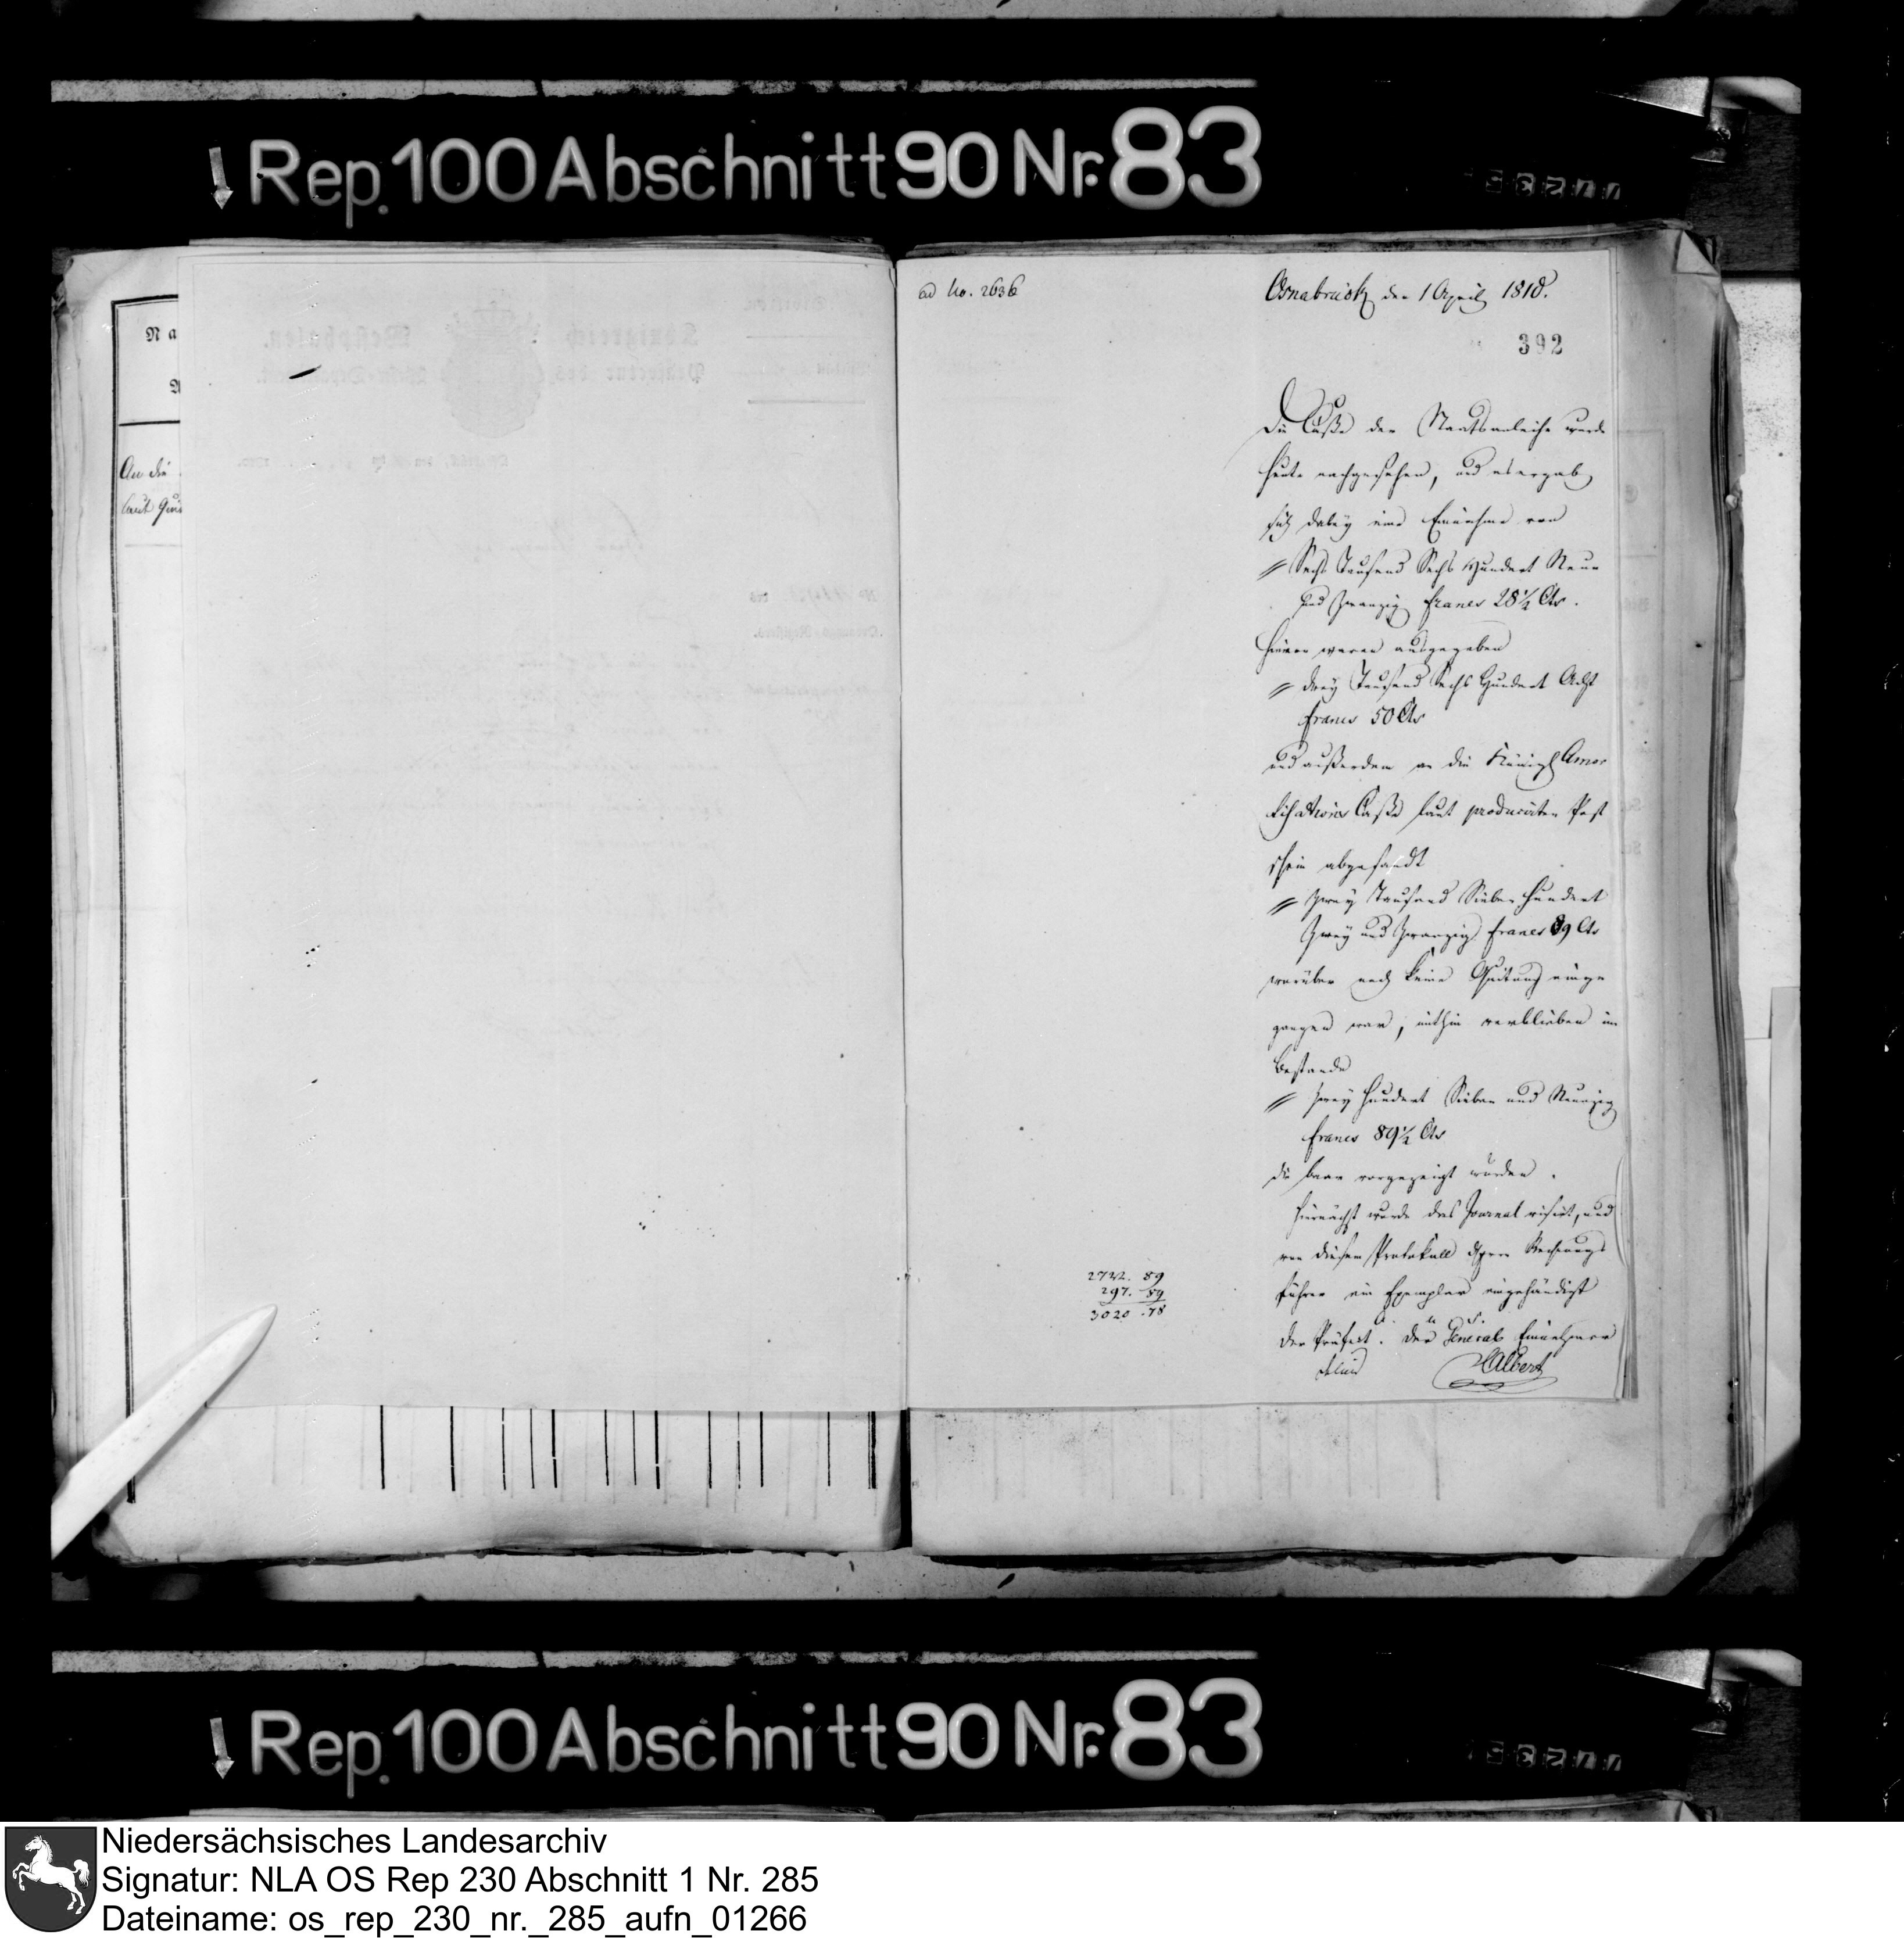 Rep. 100 Abschnitt 90 Nr. 83
ad No. 2636
Osnabrück den 1 April 1810.
392
Die Caße der Staatsanleihe wurde
heute nachgesehen, und es ergab
sich dabey eine Einnahme von
Sechs Tausend Sechs Hundert Neun
und Zwanzig francs 28½ Cts.
hievon waren ausgegeben
drey Tausend Sechs Hundert Acht
francs 50 Cts
und außerdem an die Königl Amor
tisations Caße laut producirten Post
schein abgesandt
Zwey Tausend Sieben Hundert
Zwey und Zwanzig francs 89 Cts
worüber noch keine Quitung einge
gangen war, mithin verblieben im
Bestande
Zwey Hundert Sieben und Neunzig
francs 89½ Cts
die baar vorgezeigt wurden.
Hiernächst wurde das Journal visirt, und
von diesem Protokoll Rechnungs
führer ein Exemplar eingehändigt
Der Präfect. Der General Einnehmer
Albert
2722. 89
297. 89
3020. 78
Na
A
An die
laut Qui
Rep. 100 Abschnitt 90 Nr. 83
Niedersächsisches Landesarchiv
Signatur: NLA OS Rep 230 Abschnitt 1 Nr. 285
Dateiname: os_rep_230_nr._285_aufn_01266